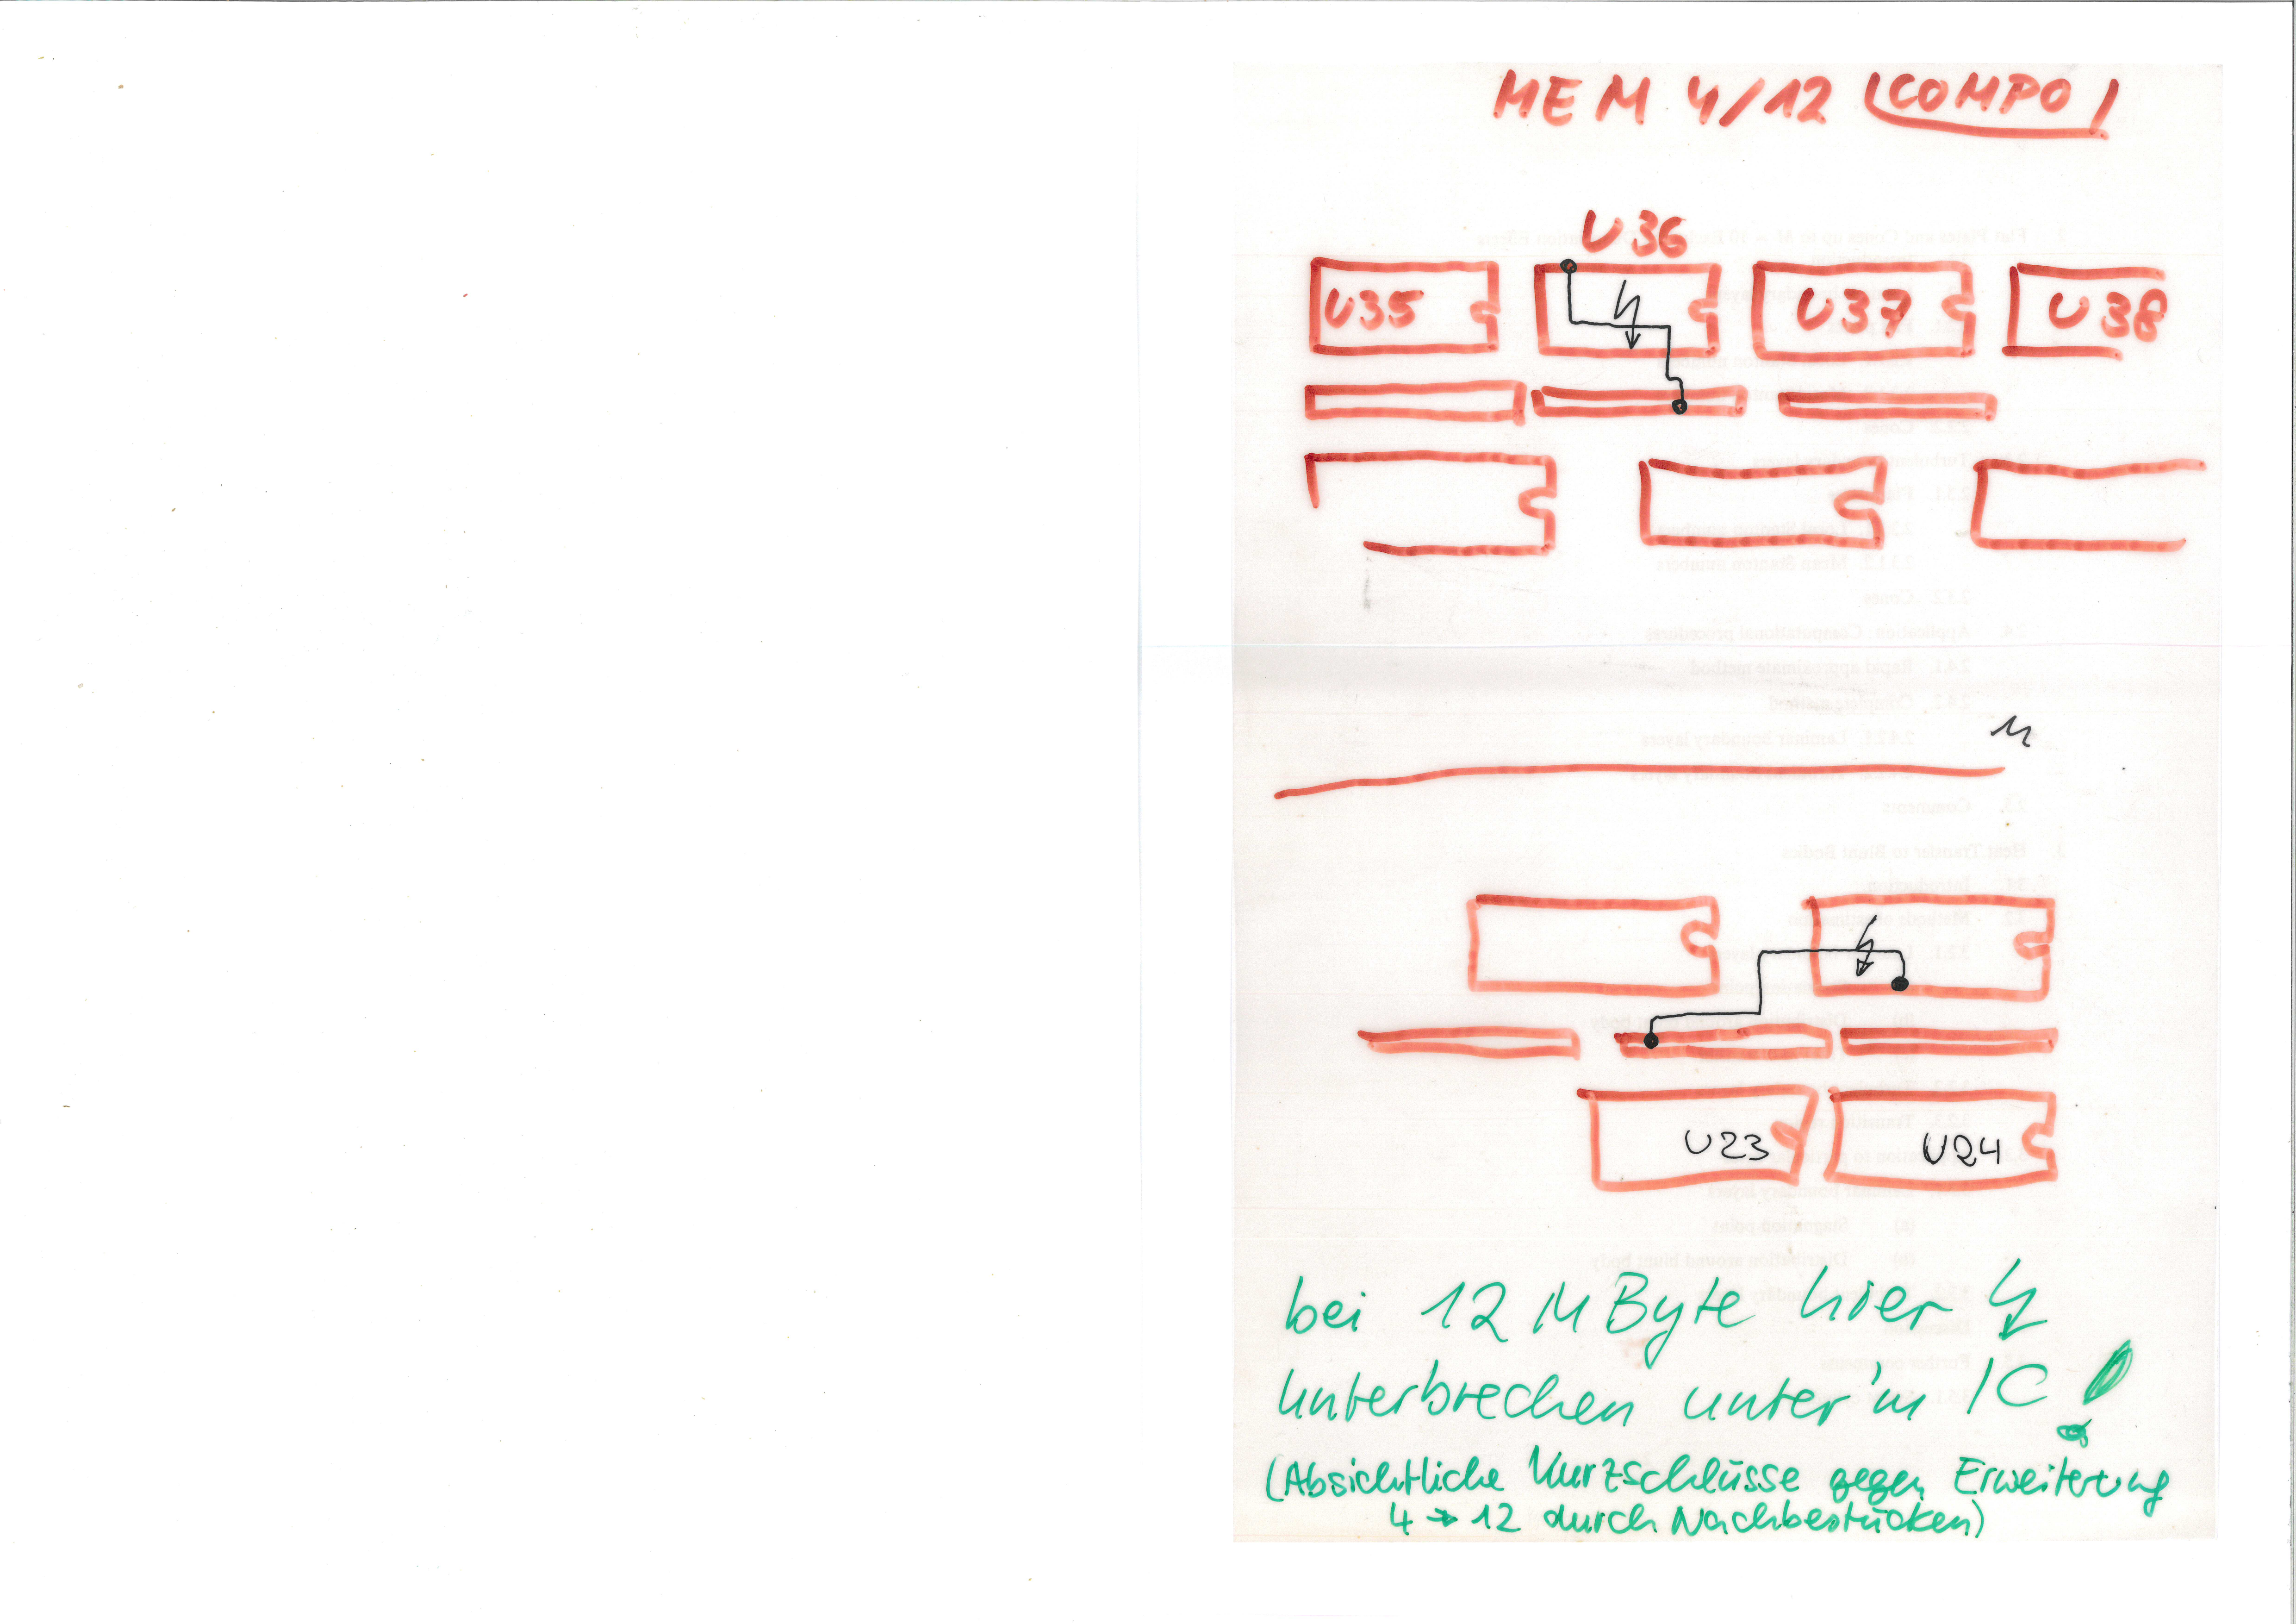 MEM 4/12 (COMPO)
U36
U35
U37
U38
U23
U24
bei 12 MByte hier
unterbrechen unter'm IC!
(Absichtliche Kurzschlüsse gegen Erweiterung
4 → 12 durch Nachbestücken)